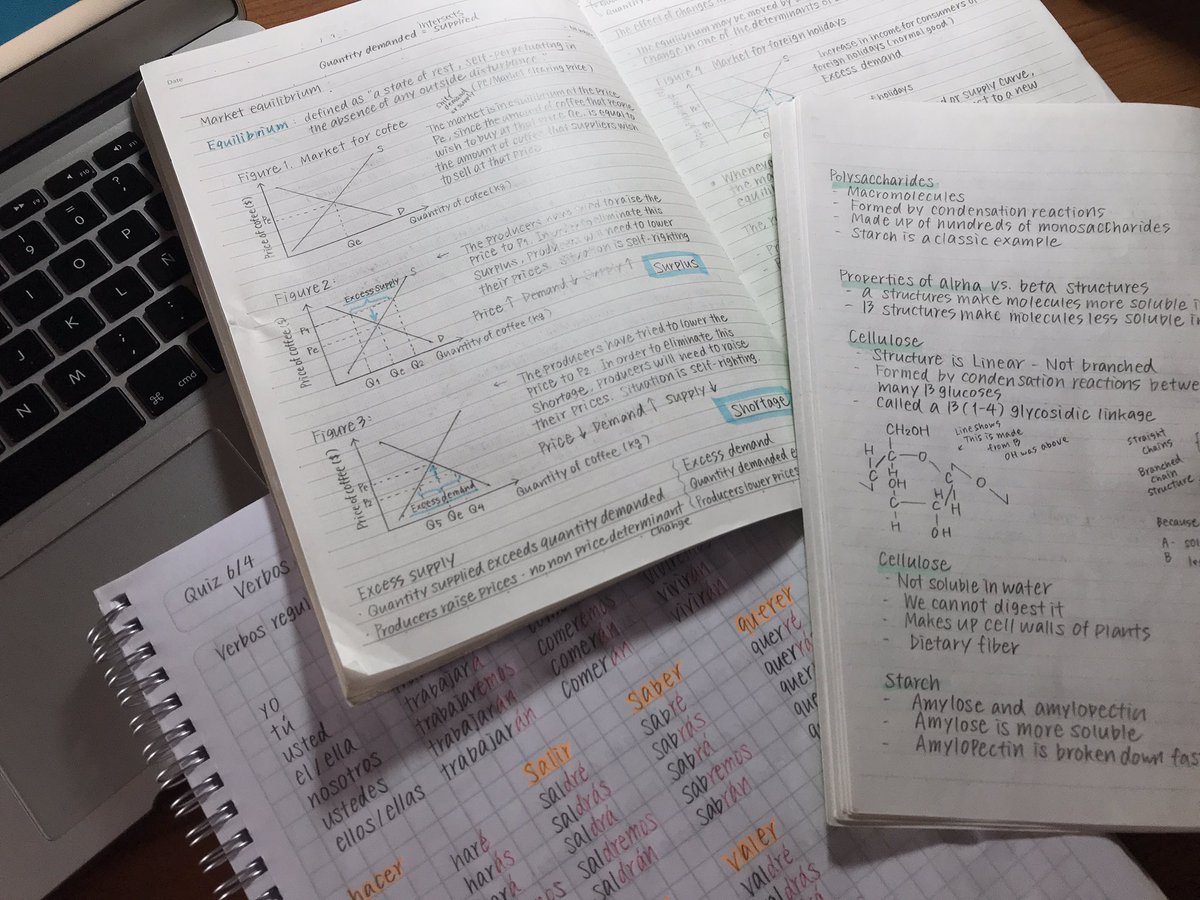 Date
intersects
Quantity demanded = supplied
Market equilibrium :
Equilibrium : defined as "a state of rest, self-perpetuating in
the absence of any outside disturbance"
(PC/Market clearing price)
Figure 1. Market for cofee
Price of coffee ($)
Pe
S
D
Qe
Quantity of cofee (kg)
The market is in equilibrium at the price
Pe, since the amount of coffee that people
wish to buy at that price Qe. is equal to
the amount of coffee that suppliers wish
to sell at that price
Figure 2:
Price of coffee
P1
Pe
Excess supply
S
D
Q1 Qe Q2
Quantity of coffee (kg)
The producers have tried to raise the
price to P1. In order to eliminate this
surplus, producers will need to lower
their prices. Situation is self-righting
Price ↑ Demand ↓ Supply ↑
Surplus
Figure 3:
Price of coffee ($)
Pe
P2
Excess demand
Q5 Qe Q4
Quantity of coffee (kg)
The producers have tried to lower the
price to P2. In order to eliminate this
shortage, producers will need to raise
their prices. Situation is self-righting.
Price ↓ Demand ↑ Supply ↓
Shortage
Excess supply
· Quantity supplied exceeds quantity demanded
· Producers raise prices - no non price determinant
change
Excess demand
Quantity demanded
Producers lower prices
The effect of changes
The equilibrium may be moved by
change in one of the determinants of
Figure 4. Market for foreign holidays
S
Increase in income for consumers of
foreign holidays (normal good)
Excess demand
holidays
or supply curve,
to a new
· Whenever
the
The
Polysaccharides
- Macromolecules
- Formed by condensation reactions
- Made up of hundreds of monosaccharides
- Starch is a classic example
Properties of alpha vs. beta structures
- α structures make molecules more soluble
- β structures make molecules less soluble in
Cellulose
- Structure is Linear - Not branched
- Formed by condensation reactions
many β glucoses
- Called a β(1-4) glycosidic linkage
CH2OH
Line shows
This is made
from β
OH was above
H C O C O
C H OH C H
C C H
H OH
Straight
chains
Branched
chain
structure
Because
A -
B
Cellulose
- Not soluble in water
- We cannot digest it
- Makes up cell walls of plants
- Dietary fiber
Starch
- Amylose and amylopectin
- Amylose is more soluble
- Amylopectin is broken down
Quiz 6/4
Verbos
Verbos
yo
tú
usted
el/ella
nosotros
ustedes
ellos/ellas
trabajará
trabajaremos
trabajarán
trabajarán
comeremos
comerán
comerán
vivirán
vivirán
hacer
haré
harás
salir
saldré
saldrás
saldrá
saldremos
saldrán
saber
sabré
sabrás
sabrá
sabremos
sabrán
querer
querré
valer
valdré
valdrás
F10
F11
F12
cmd
⌘
9
0
=
?
I
O
P
J
K
L
Ñ
N
M